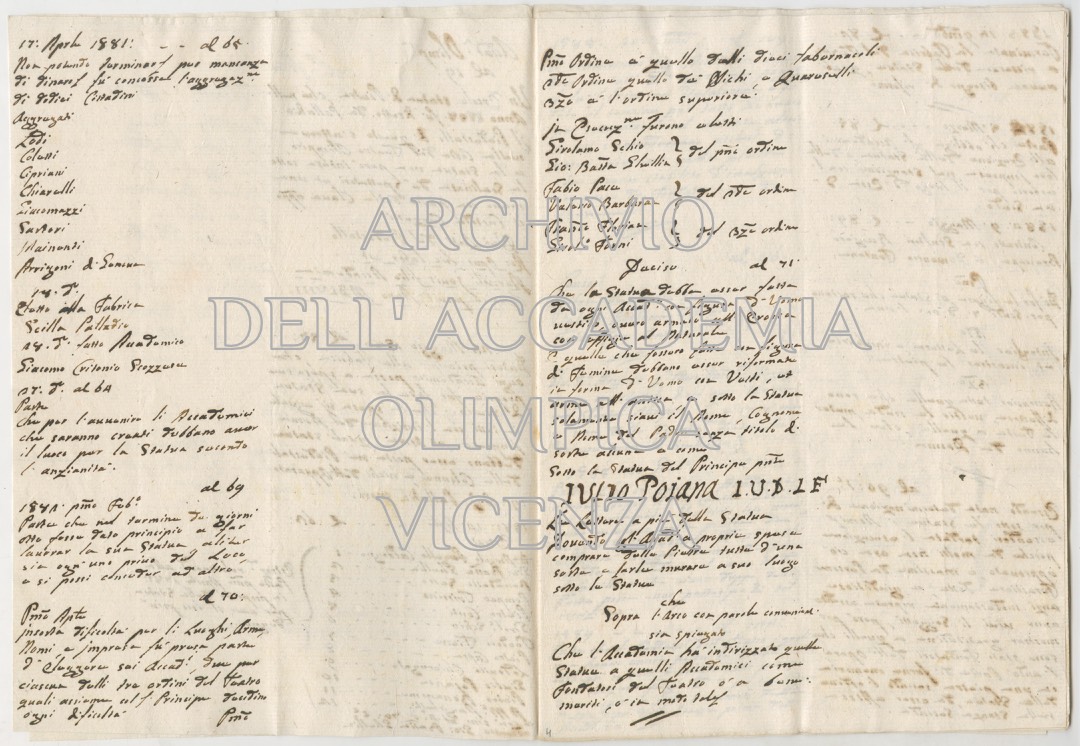 17: Aprle 1581: - - al 65
Non potendo terminarsi per mancanza
di dinarosi fù concessa l'aggregaz.ne
di dodici Cittadini
Aggregati
Lodi
Colzesi
Cipriani
Chiarelli
Giacomazzi
Sartori
Mainenti
Arrigoni di Genova
18. d.o
Eletto alla Fabrica
Scilla Palladio
28. d.o fatto Accademico
Giacomo Critonio Scozzese
27. d.o al 64
Parte
Che per l'avvenire li Accademici
che saranno creati debbano aver
il luoco per la Statua secondo
l'anzianità.
al 69
1582 p.mo Feb.o
Parte che nel termine de giorni
otto fosse dato principio a far
lavorar la sua Statua aliter
sia ogn'uno privo del Loco
e si possi conceder ad altro,
al 70:
P.mo Aple
insorta dificoltà per li Luoghi, Arme,
Nomi e imprese fù presa parte
d'Elleggere sei Accad.i, due per
ciascun delli tre ordini del Teatro
quali assieme col s.r Principe decidino
ogni dificoltà P.mo
P.mo Ordine è quello delli dieci Tabernacoli
2.do Ordine quello de Nichi, e Quareselli
3.zo è l'ordine superiore.
in Esecuz.ne furono eletti
Girolamo Schio
Gio: Batta } del p.mo ordine
Fabio Pace
Valerio Barbaran } del 2.do ordine
Franc.o
Girol.o Forni } del 3.zo ordine
Deciso al 71.
Che le Statue debba esser fatta
da ogni Accad.o con figura d'Uomo
vestito, ovvero armato all'Eroica
con effigie al Naturale
E quelle che fossero fatte con figura
di Femina debbano esser riformate
in forma d'Uomo con Vesti, et
arme all'antica e sotto la Statua
solamente siavi il Nome, Cognome
e Nome del Padre senza titolo di
sorte alcuna e come
Sotto la Statua del Principe p.nte
IULIO Poiana I.U.D. I F
Le Lettere a piè delle Statue
dovendo gl'Accad.i a proprie spese
comprare delle Pietre tutte d'una
sorte e farle murare a suo luogo
sotto la Statua
che
Sopra l'Arco con parole convenienti
sia spiegato
Che l'Accademia hà indirizzato quelle
Statue a quelli Accademici come
Fondatori del Teatro ò a bene-
meriti, ò in modo tale
ARCHIVIO
DELL'ACCADEMIA
OLIMPICA
VICENZA